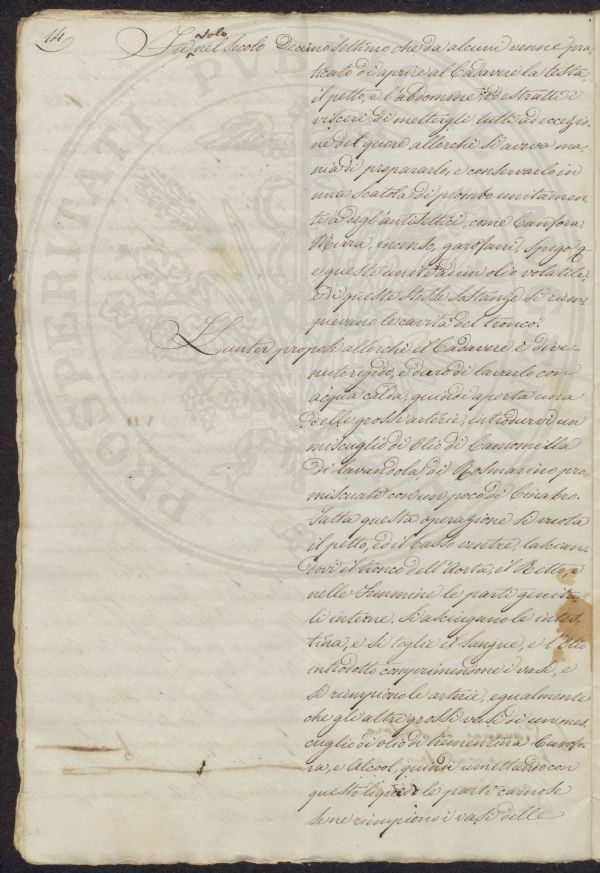 14
solo
Fu nel Secolo Decimo Settimo che da alcuni venne pra-
ticato di aprire al Cadavere la testa,
il petto, e l'abdomine, ed estratti i
visceri di mettergli tutti ad eccezio-
ne del quore allorchè si aveva ma-
nia di prepararlo, e conservarlo in
una Scatola di piombo unitamen-
te a degl'antisettici, come Canfora,
Mirra, incenso, garofani, Spigo &
e queste unite ad un olio volatile,
e di queste stesse sostanze si riem-
pievano le cavità del tronco.
Hunter propose allorchè il Cadavere è dive-
nuto rigido, e duro di lavarlo con
acqua calda, quindi aperta una
delle grosse arterie, introdurvi un
miscuglio di Olio di Camomilla
di lavandola, di Rosmarino pro-
miscuato con un poco di Cinabro.
Fatta questa operazione si vuota
il petto, ed il basso ventre, lascian-
dovi il tronco dell'Aorta, il Retto, e
nelle Femmine le parti genita-
li interne. Si asciugano le intes-
tina, e si toglie il Sangue, e l'Olio
introdotto comprimendone i vasi, e
si riempiono le arterie, egualmente
che gli altri grossi vasi di un mis-
cuglio di olio di trementina Canfo-
ra, e Alcool, quindi umettando con
questo liquido le parti carnose
se ne riempiono i vasi delle
PROSPERITATI PUBLICAE